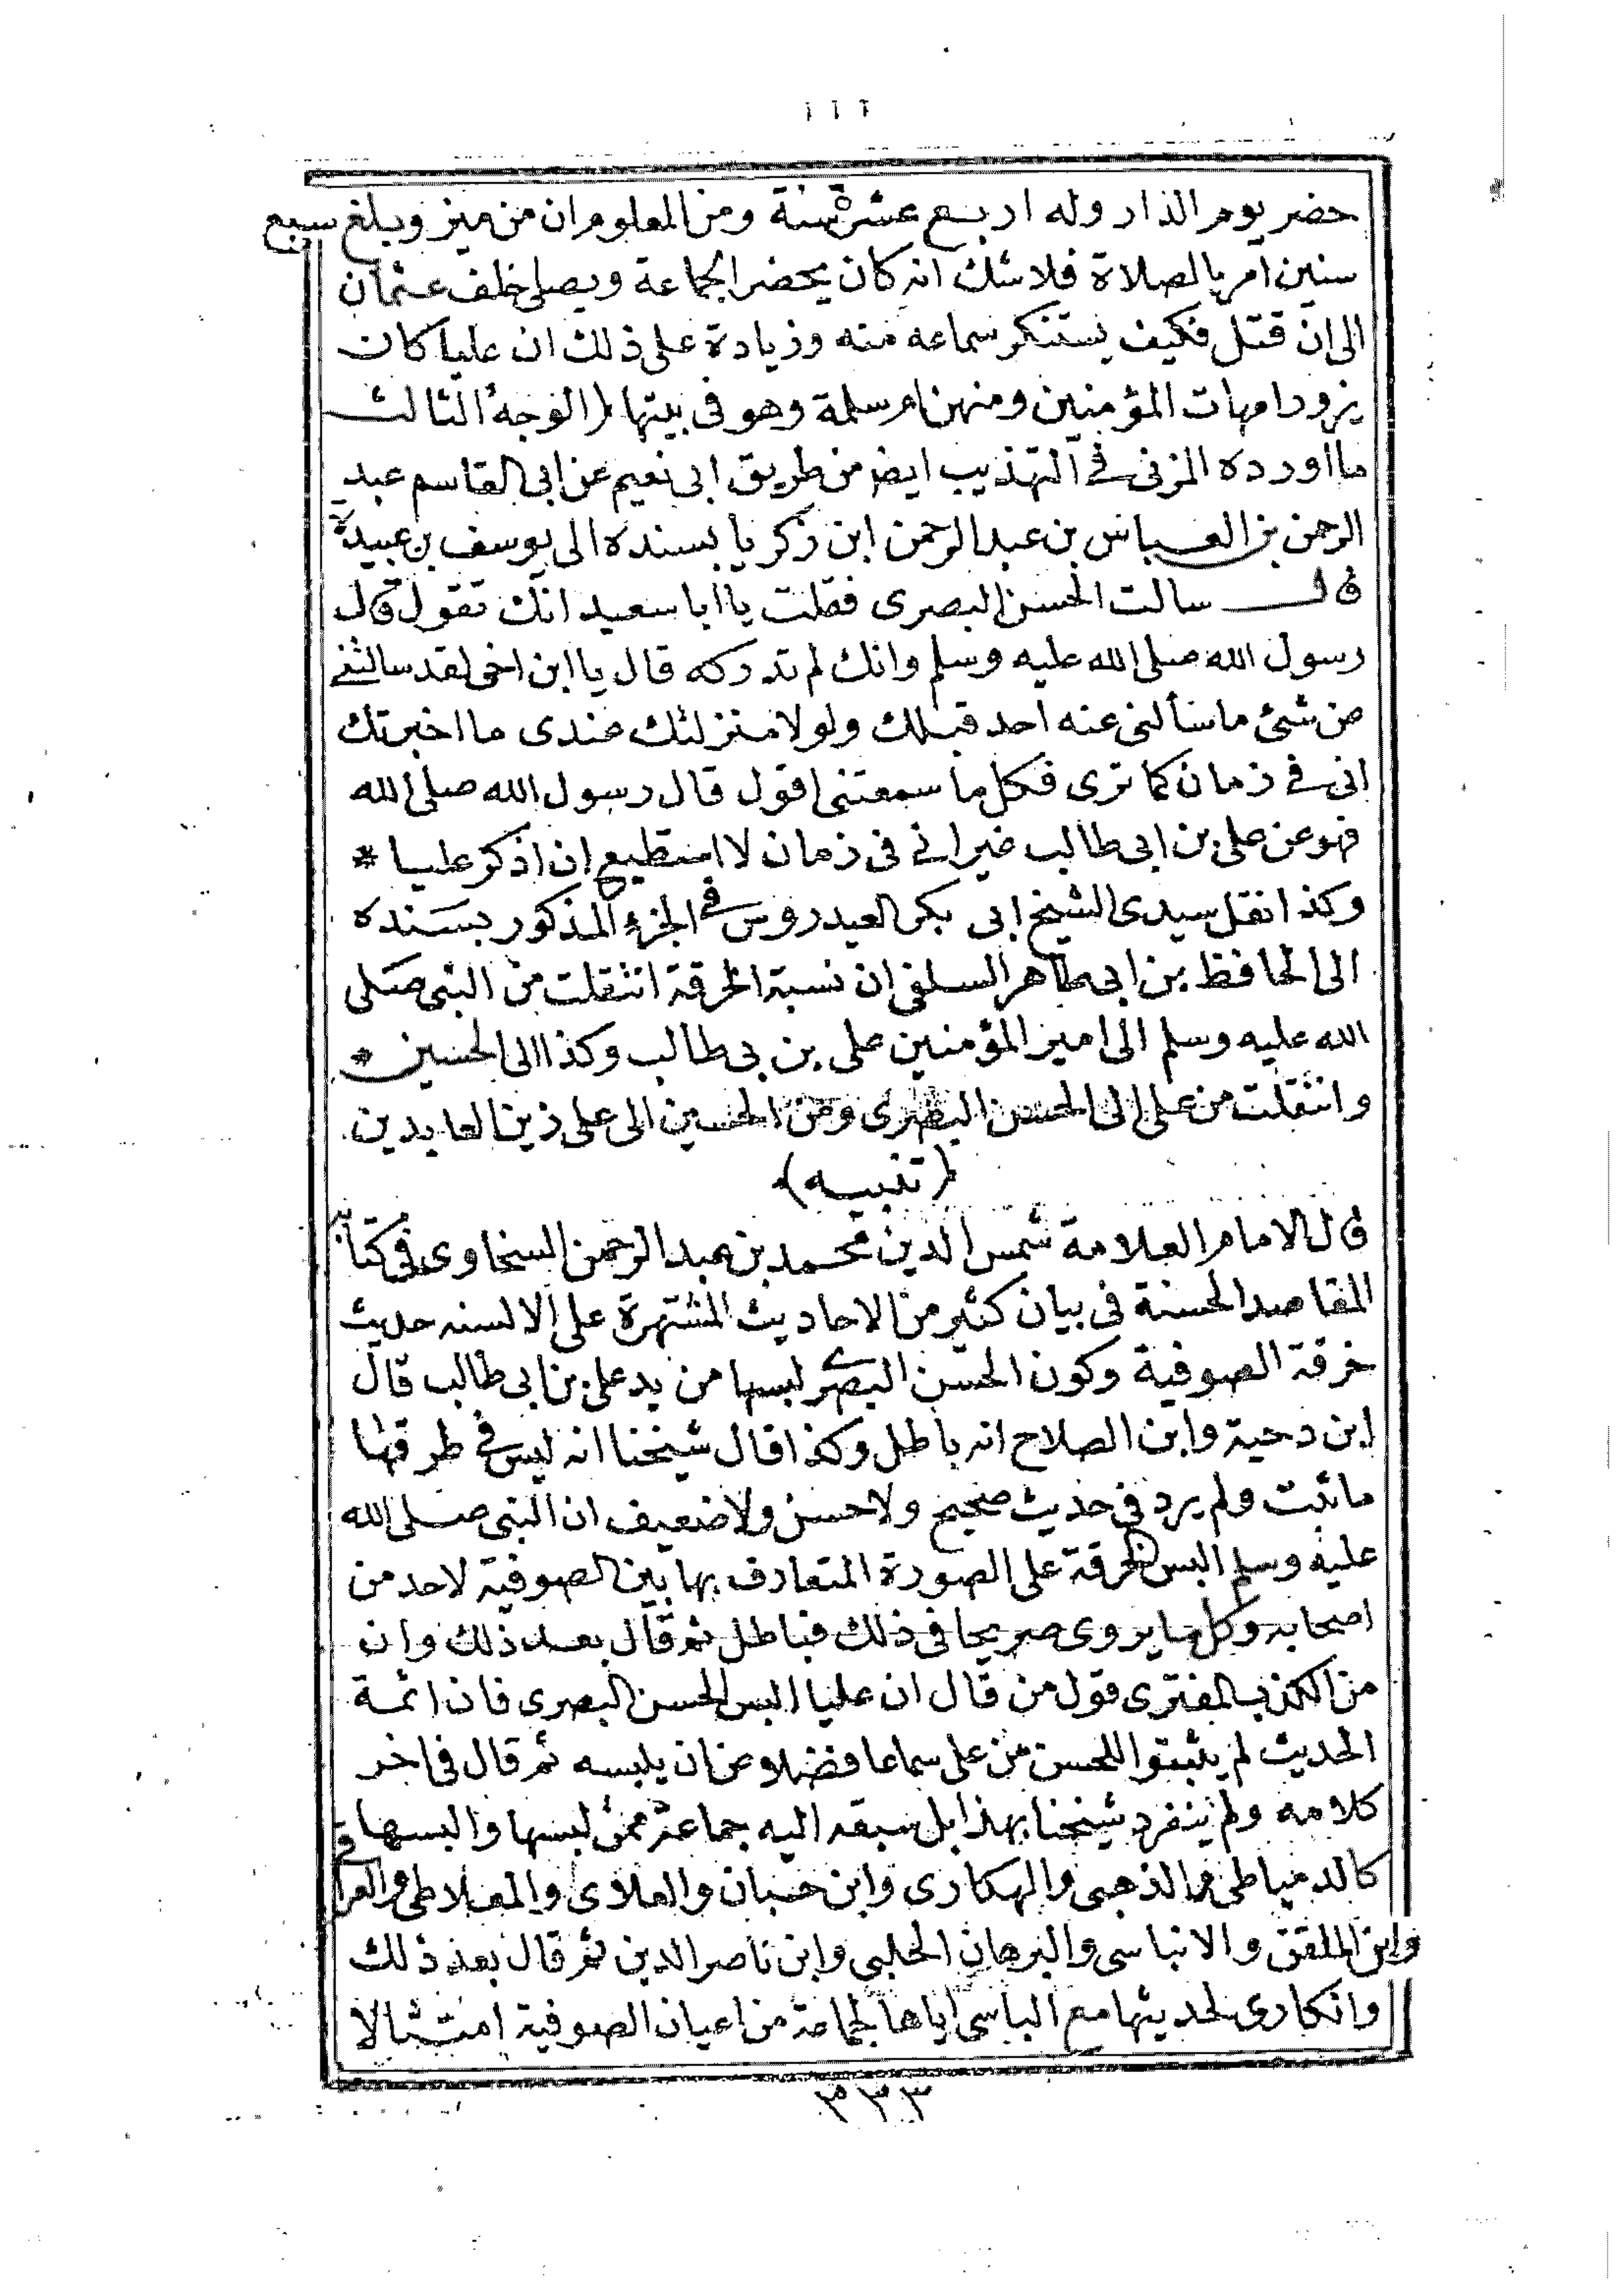 حضر يوم الدار وله اربع عشرة سنة ومن المعلوم ان من ميز وبلغ سبع
سنين امر بالصلاة فلا شك انه كان يحضر الجماعة ويصلى خلف عثمان
الى ان قتل فكيف يستنكر سماعه منه وزيادة على ذلك ان عليا كان
يزور امهات المؤمنين ومنهن ام سلمة وهو فى بيتها (الوجه الثالث
ما اورده المزنى فى التهذيب ايضا من طريق ابى نعيم عن ابى القاسم عبد
الرحمن بن العباس بن عبد الرحمن ابن زكريا بسنده الى يوسف بن عبيدة
قال سالت الحسن البصرى فقلت يا ابا سعيد انك تقول قال
رسول الله صلى الله عليه وسلم وانك لم تدركه قال يا ابن اخى لقد سالتنى
من شئ ما سألنى عنه احد قبلك ولولا منزلتك عندى ما اخبرتك
انى فى زمان كما ترى فكل ما سمعتنى اقول قال رسول الله صلى الله
فهو عن على بن ابى طالب غير انى فى زمان لا استطيع ان اذكر عليا *
وكذا نقل سيدى الشيخ ابى بكر العيدروس فى الجزء المذكور بسنده
الى الحافظ بن ابى طاهر السلفى ان نسبة الخرقة انتقلت من النبى صلى
الله عليه وسلم الى امير المؤمنين على بن بى طالب وكذا الى الحسين *
وانتقلت من على الى الحسن البصرى ومن الحسين الى على زين العابدين
(تنبيه)
قال الامام العلامة شمس الدين محمد بن عبد الرحمن السخاوى فى كتابه
المقاصد الحسنة فى بيان كثير من الاحاديث المشتهرة على الالسنه حديث
خرقة الصوفية وكون الحسن البصرى لبسها من يد على بن ابى طالب قال
ابن دحية وابن الصلاح انه باطل وكذا قال شيخنا انه ليس فى طرقها
ما ثبت ولم يرد فى حديث صحيح ولا حسن ولا ضعيف ان النبى صلى الله
عليه وسلم البس الخرقة على الصورة المتعارف بها بين الصوفية لاحد من
اصحابه وكل ما يروى صريحا فى ذلك فباطل ثم قال بعد ذلك وان
من الكذب المفترى قول من قال ان عليا البس الحسن البصرى فان ائمة
الحديث لم يثبتوا للحسن من على سماعا فضلا عن ان يلبسه ثم قال فى اخر
كلامه ولم ينفرد شيخنا بهذا بل سبقه اليه جماعة ممن لبسها والبسها
كالدمياطى والذهبى والهكارى وابن حبان والعلاوى والمغلاطى والعراقى
وابن الملقن والانباسى والبرهان الحلبى وابن ناصر الدين ثم قال بعد ذلك
وانكارى لحديثها مع الباسى اياها لجماعة من اعيان الصوفية امتثالا
٣٣٣